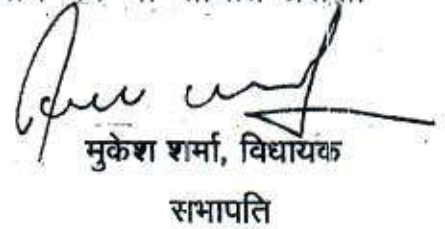 मुकेश शर्मा, विधायक
सभापति